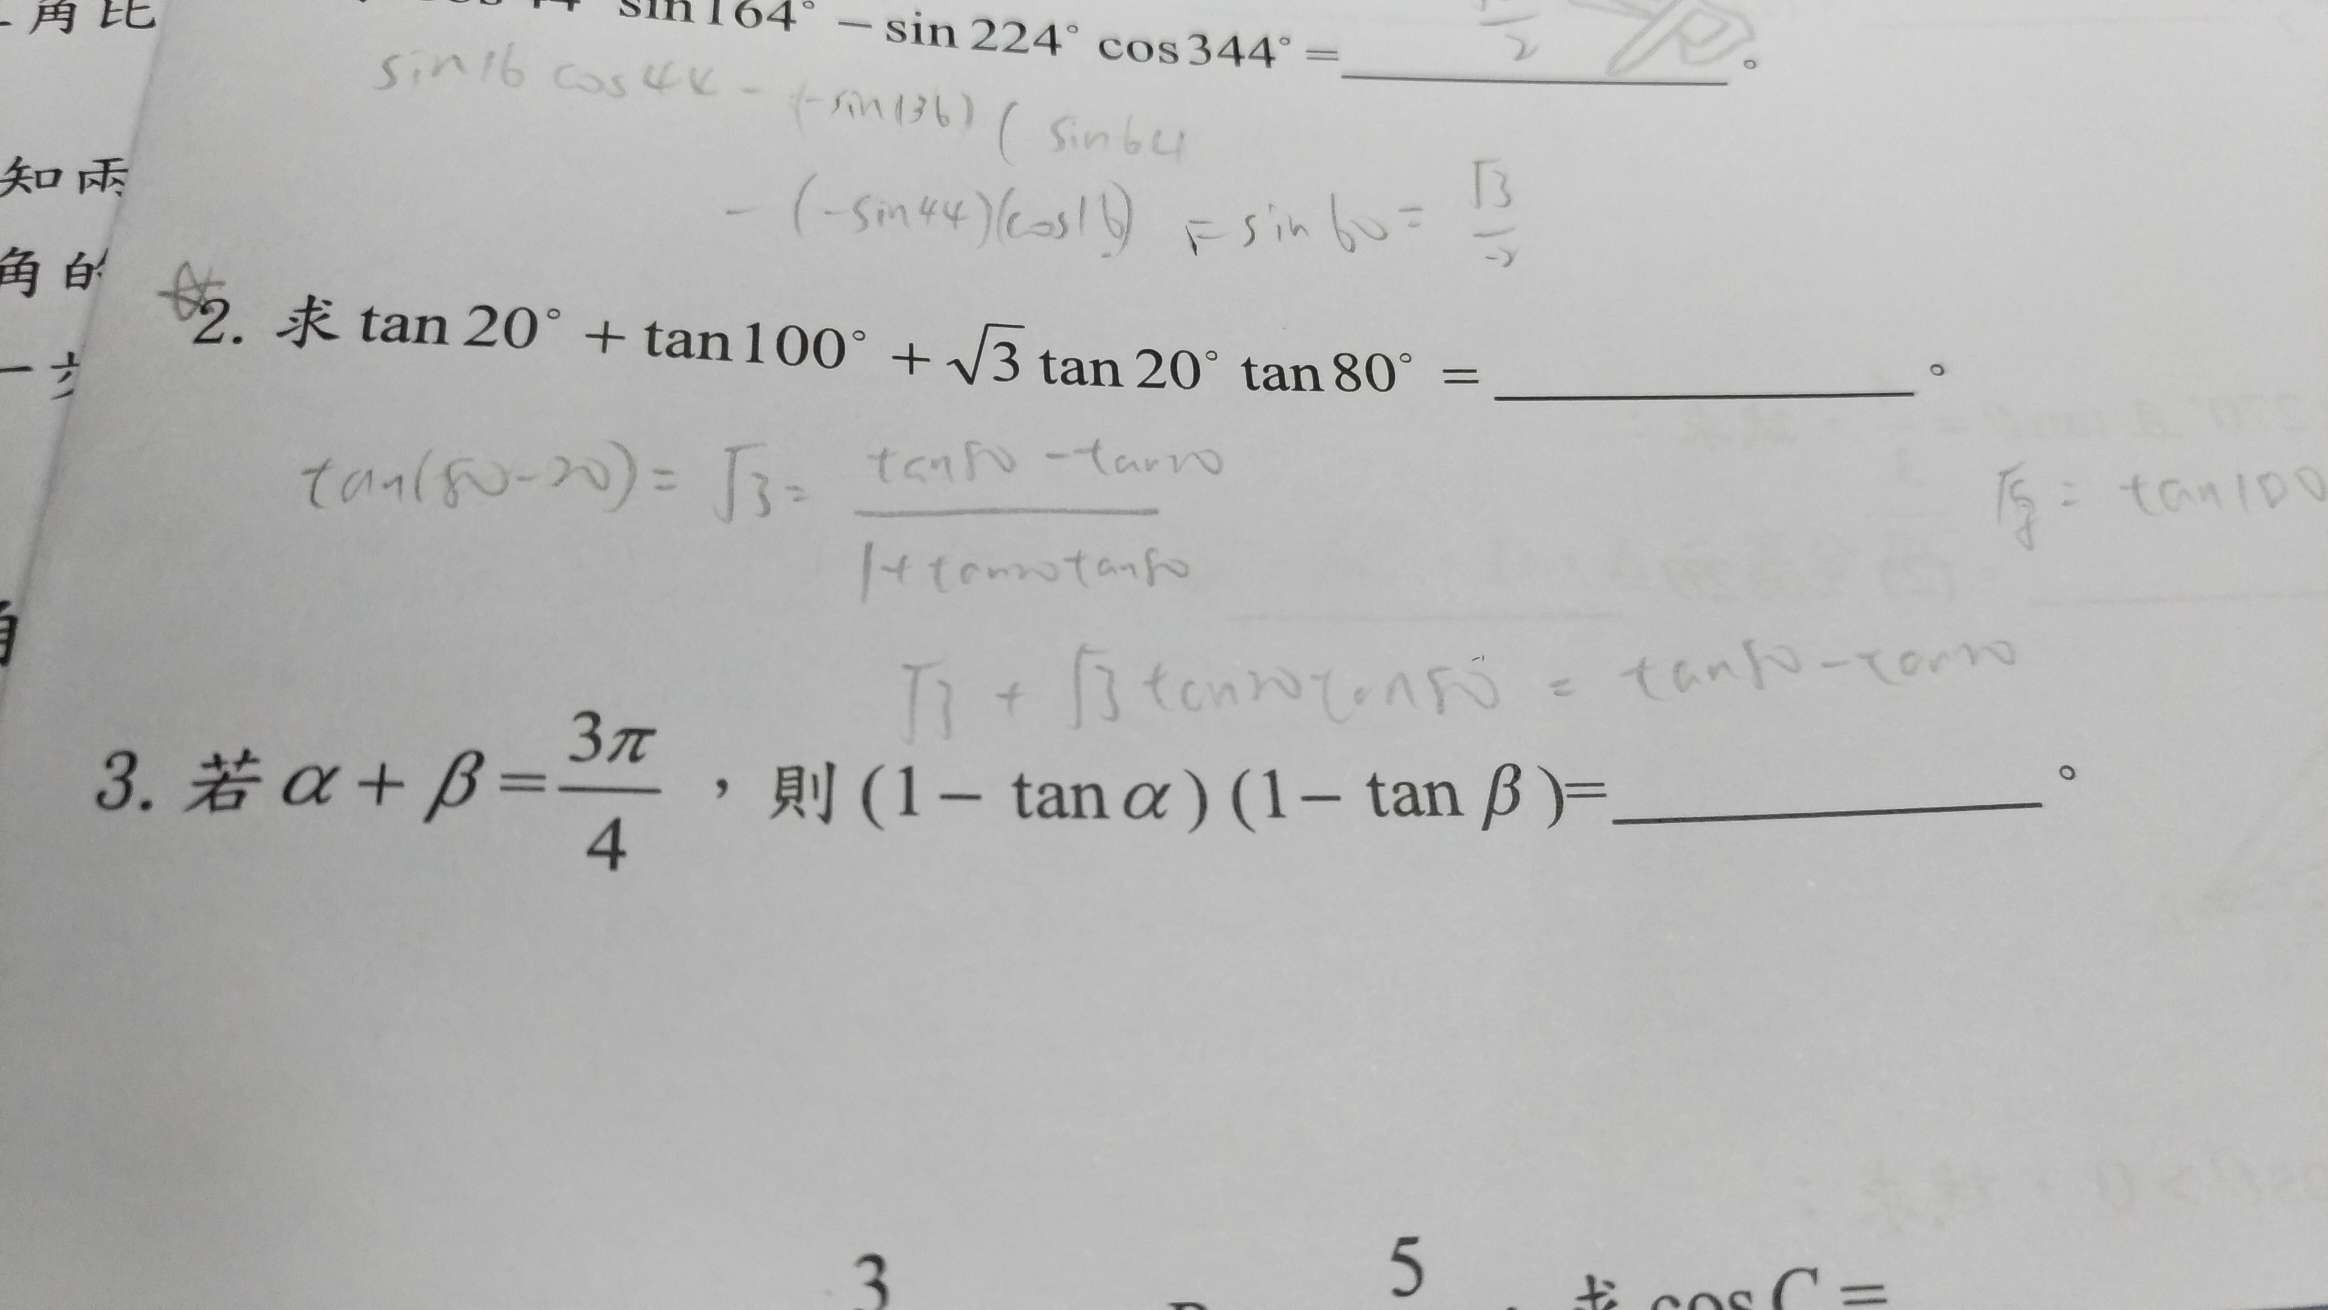 角比
sin164° − sin 224° cos344° = ______ 。
sin16 cos44 − (−sin136) ( sin64
知兩
− (−sin44)(cos16) = sin60 = √3/2
角的
2. 求 tan 20° + tan100° + √3 tan 20° tan 80° = ______ 。
tan(80−20) = √3 = (tan80 − tan20)/(1+tan20tan80)
= tan100
√3 + √3 tan20tan80 = tan80 − tan20
3. 若 α + β = 3π/4 ，則 (1 − tan α) (1 − tan β) = ______ 。
3
5
求 cos C =